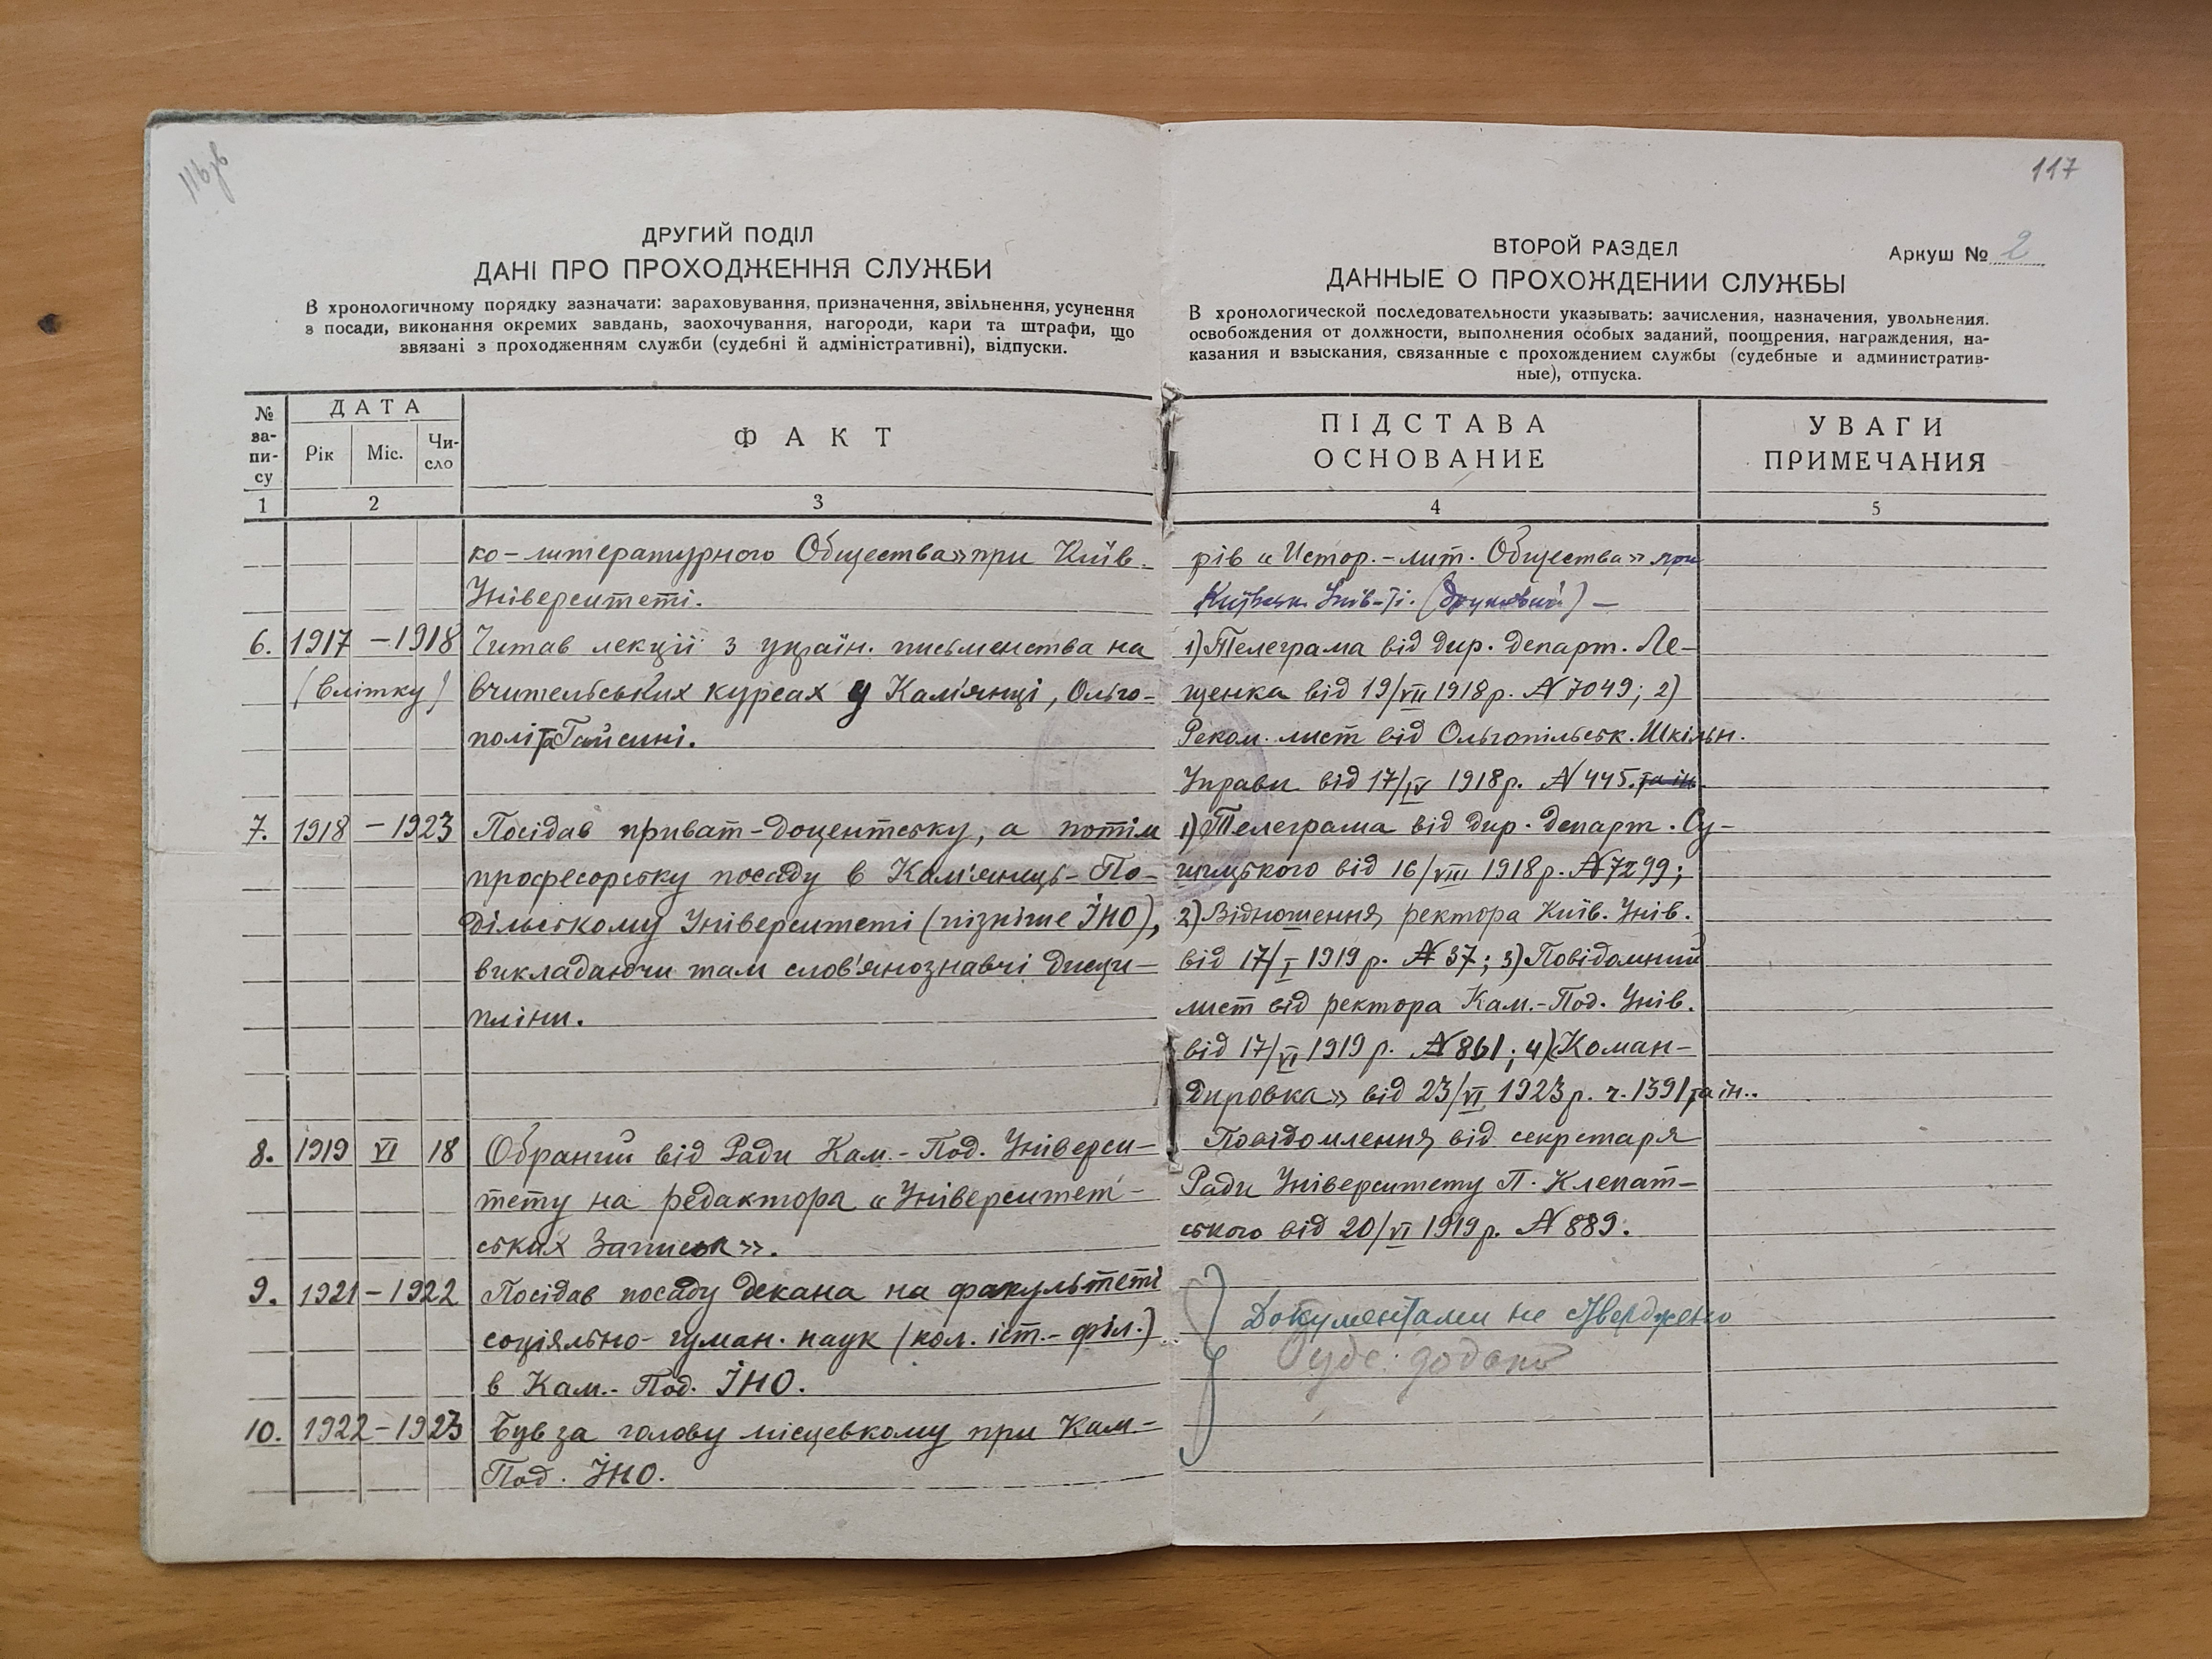 116зв
ДРУГИЙ ПОДІЛ
ДАНІ ПРО ПРОХОДЖЕННЯ СЛУЖБИ
В хронологичному порядку зазначати: зараховування, призначення, звільнення, усунення
з посади, виконання окремих завдань, заохочування, нагороди, кари та штрафи, що
звязані з проходженням служби (судебні й адміністративні), відпуски.
№ за-пи-су
ДАТА
Рік Міс. Чи-сло
ФАКТ
1 2 3
ко-литературного Общества» при Київ.
Університеті.
6. 1917 – 1918 Читав лекції з україн. письменства на
(влітку) вчительських курсах у Кам'янці, Ольго-
полі та Гайсині.
7. 1918 – 1923 Посідав приват-доцентську, а потім
професорську посаду в Кам'янець-По-
дільському Університеті (пізніше ІНО),
викладаючи там слов'янознавчі дисци-
пліни.
8. 1919 VI 18 Обраний від Ради Кам.-Под. Універси-
тету на редактора «Університет-
ських Записок».
9. 1921 – 1922 Посідав посаду декана на факультеті
соціяльно-гуман. наук (кол. іст.-філ.)
в Кам.-Под. ІНО.
10. 1922 – 1923 Був за голову місцевкому при Кам.-
Под. ІНО.
117
ВТОРОЙ РАЗДЕЛ
Аркуш № 2
ДАННЫЕ О ПРОХОЖДЕНИИ СЛУЖБЫ
В хронологической последовательности указывать: зачисления, назначения, увольнения.
освобождения от должности, выполнения особых заданий, поощрения, награждения, на-
казания и взыскания, связанные с прохождением службы (судебные и административ-
ные), отпуска.
ПІДСТАВА
ОСНОВАНИЕ
УВАГИ
ПРИМЕЧАНИЯ
4 5
рів «Истор.-лит. Общества» при
Київськ. Унів-ті. (друкований) –
1) Телеграма від дир. департ. Ле-
щенка від 19/VII 1918 р. № 7049; 2)
Реком. лист від Ольгопільськ. Шкільн.
Управи від 17/IV 1918 р. № 445. та ін.
1) Телеграма від дир. департ. Су-
шицького від 16/VIII 1918 р. № 7299;
2) Відношення ректора Київ. Унів.
від 17/I 1919 р. № 37; 3) Повідомний
лист від ректора Кам.-Под. Унів.
від 17/VI 1919 р. № 861; 4) «Коман-
дировка» від 23/VI 1923 р. ч. 1391 та ін..
Повідомлення від секретаря
Ради Університету П. Клепат-
ського від 20/VI 1919 р. № 889.
Документами не стверджено
буде додано